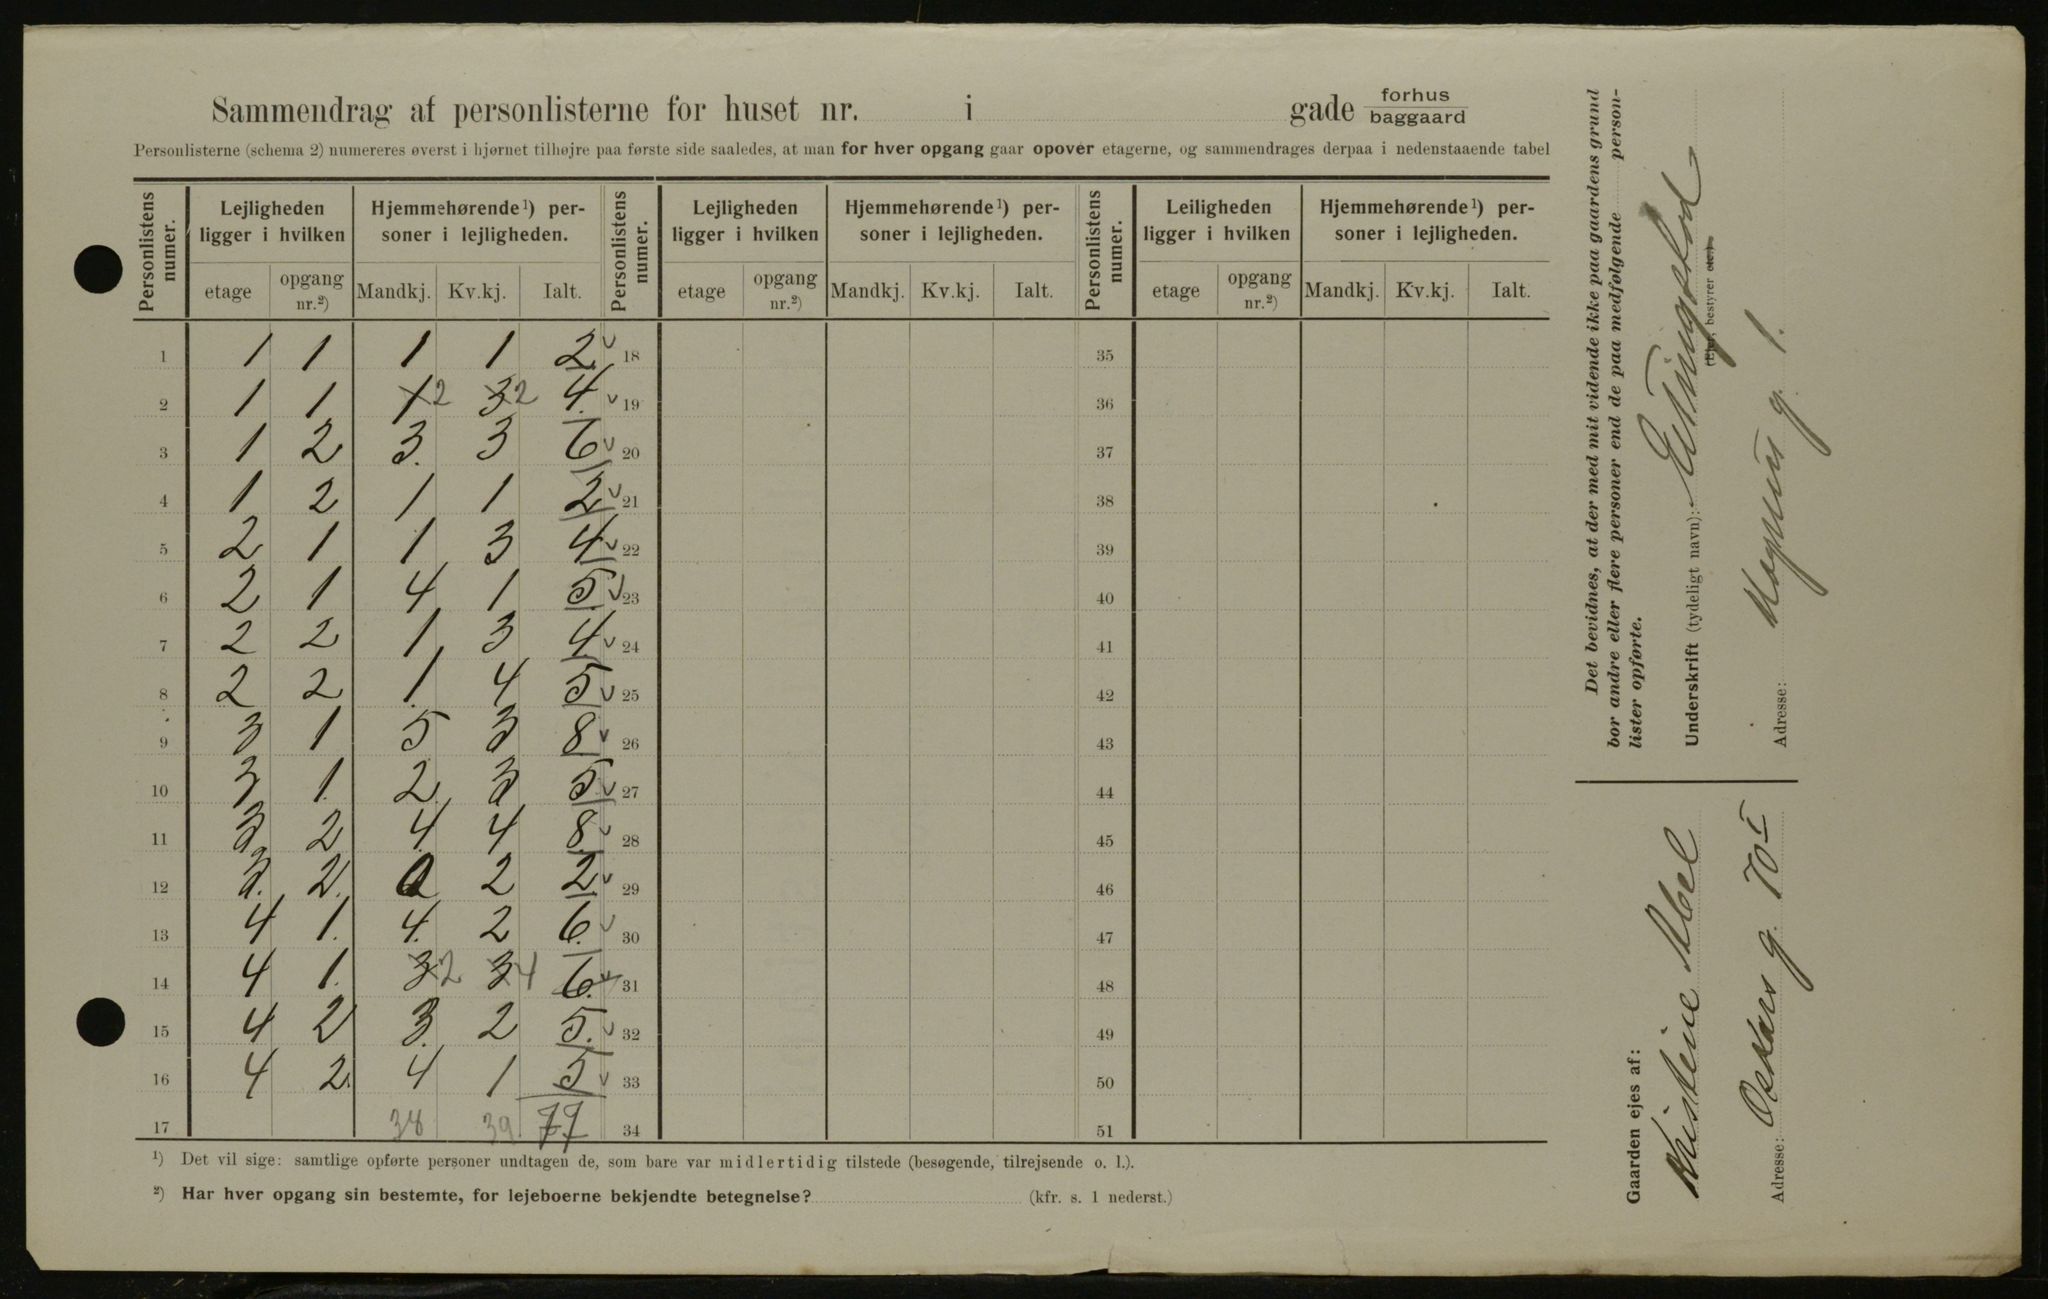 Sammendrag af personlisterne for huset nr. i gade forhus baggaard
Personlisterne (schema 2) numereres øverst i hjørnet tilhøjre paa første side saaledes, at man for hver opgang gaar opover etagerne, og sammendrages derpaa i nedenstaaende tabel
Personlistens numer. Lejligheden ligger i hvilken Hjemmehørende ¹) personer i lejligheden. Personlistens numer. Lejligheden ligger i hvilken Hjemmehørende ¹) personer i lejligheden. Personlistens numer. Leiligheden ligger i hvilken Hjemmehørende ¹) personer i lejligheden.
etage opgang nr.²) Mandkj. Kv.kj. Ialt. etage opgang nr.²) Mandkj. Kv.kj. Ialt. etage opgang nr.²) Mandkj. Kv.kj. Ialt.
1 1 1 1 1 2 18 35
2 1 1 1 2 3 2 4. 19 36
3 1 2 3. 3 6 20 37
4 1 2 1 1 2 21 38
5 2 1 1 3 4 22 39
6 2 1 4 1 5 23 40
7 2 2 1 3 4 24 41
8 2 2 1 4 5 25 42
9 3 1 5 3 8 26 43
10 3 1. 2 3 5 27 44
11 3 2 4. 4 8 28 45
12 3. 2. 0 2 2 29 46
13 4 1. 4. 2 6. 30 47
14 4 1. 3 2 3 4 6. 31 48
15 4 2 3. 2 5. 32 49
16 4 2. 4 1 5 33 50
17 38 39 77 34 51
¹) Det vil sige: samtlige opførte personer undtagen de, som bare var midlertidig tilstede (besøgende, tilrejsende o. l.).
²) Har hver opgang sin bestemte, for lejeboerne bekjendte betegnelse? (kfr. s. 1 nederst.)
Det bevidnes, at der med mit vidende ikke paa gaardens grund
bor andre eller flere personer end de paa medfølgende person-
lister opførte.
Underskrift (tydeligt navn):
(Ejer, bestyrer etc.)
Adresse: Magnus g. 1.
Gaarden ejes af:
Kristine Abel
Adresse: Oskars g. 70 I